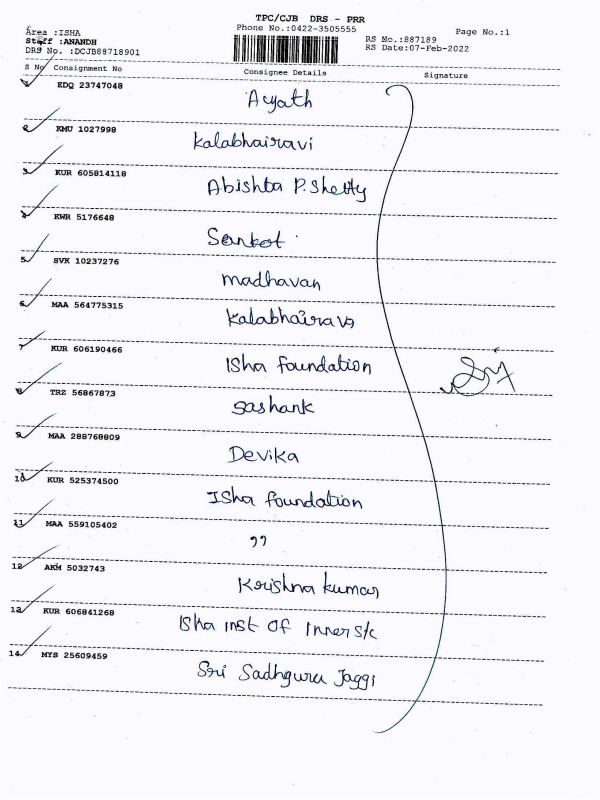 TPC/CJB DRS - PRR
Phone No.:0422-3505555
Page No.:1
Area :ISHA
Staff :ANANDH
DRS No. :DCJB88718901
RS No.:887189
RS Date:07-Feb-2022
S No Consignment No Consignee Details Signature
1 EDQ 23747048
Ayath
2 KMU 1027998
Kalabhairavi
3 KUR 605814118
Abishta P. Shetty
4 KWR 5176648
Sankot
5 SVK 10237276
madhavan
6 MAA 564775315
Kalabhairava
7 KUR 606190466
Isha foundation
8 TRZ 56867873
Sashank
9 MAA 288768809
Devika
10 KUR 525374500
Isha foundation
11 MAA 559105402
"
12 AKM 5032743
Krishna kumar
13 KUR 606841268
Isha inst of Inner s/c
14 MYS 25609459
Sri Sadhguru Jaggi